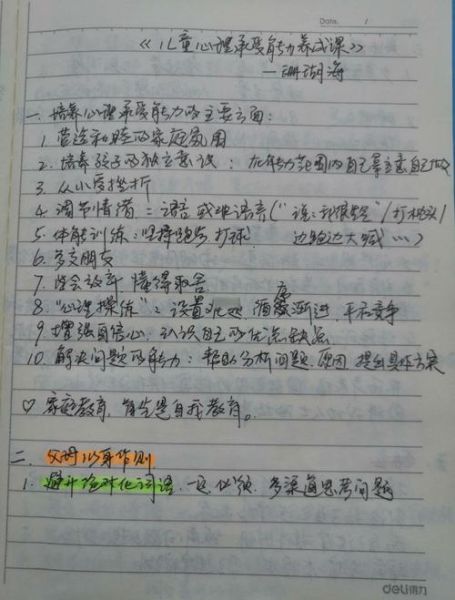 Date. /
《儿童心理承受能力养成课》
—珊瑚海
一. 培养心理承受能力的主要方面:
1. 营造和睦的家庭氛围
2. 培养孩子的独立意识: 在能力范围内自己拿主意自己做
3. 从小受挫折
4. 调节情绪 = 语言或非语言("说:我很生气"/打枕头/
5. 体能训练: 坚持跑步 打球. 边跑边大喊…)
6. 多交朋友
7. 学会放弃 懂得取舍
8. "心理操练": 设置 循序渐进, 平等竞争
9. 增强自信心, 认识自己的优点缺点
10. 解决问题的能力: 帮助分析问题.原因 提出具体方案
♡ 家庭教育, 首先是自我教育。
二. 父母以身作则
1. 避开绝对化词语. 一定 必须. 多渠道思考问题
deli得力